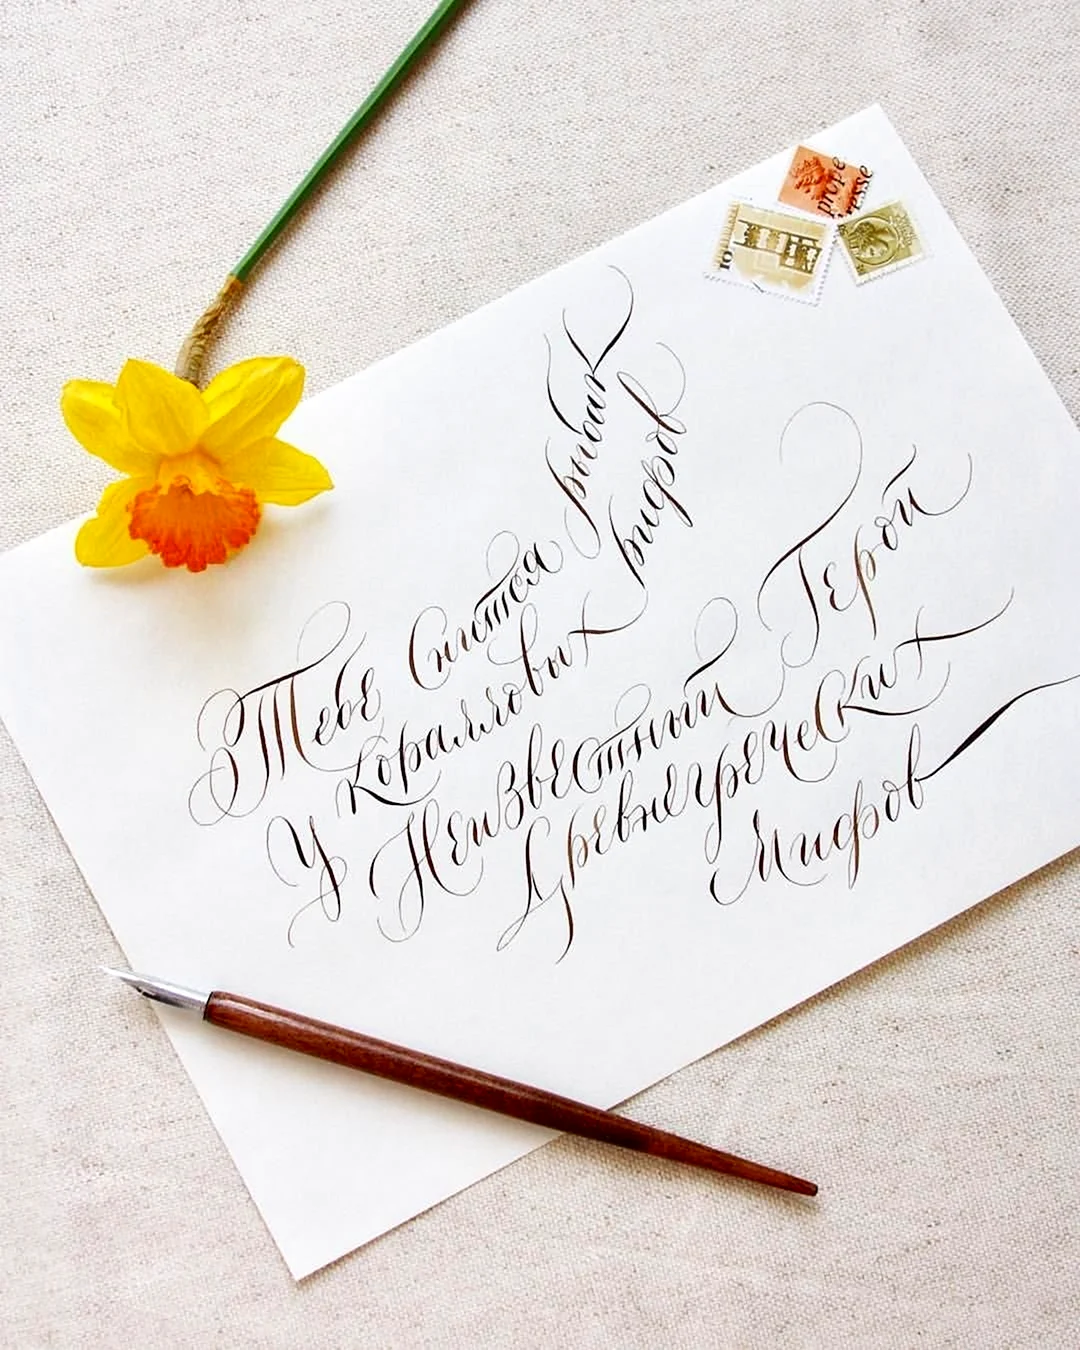 Тебе Снится рыбак
У коралловых рифов
Неизвестный Герой
Древнегреческих
Мифов
10